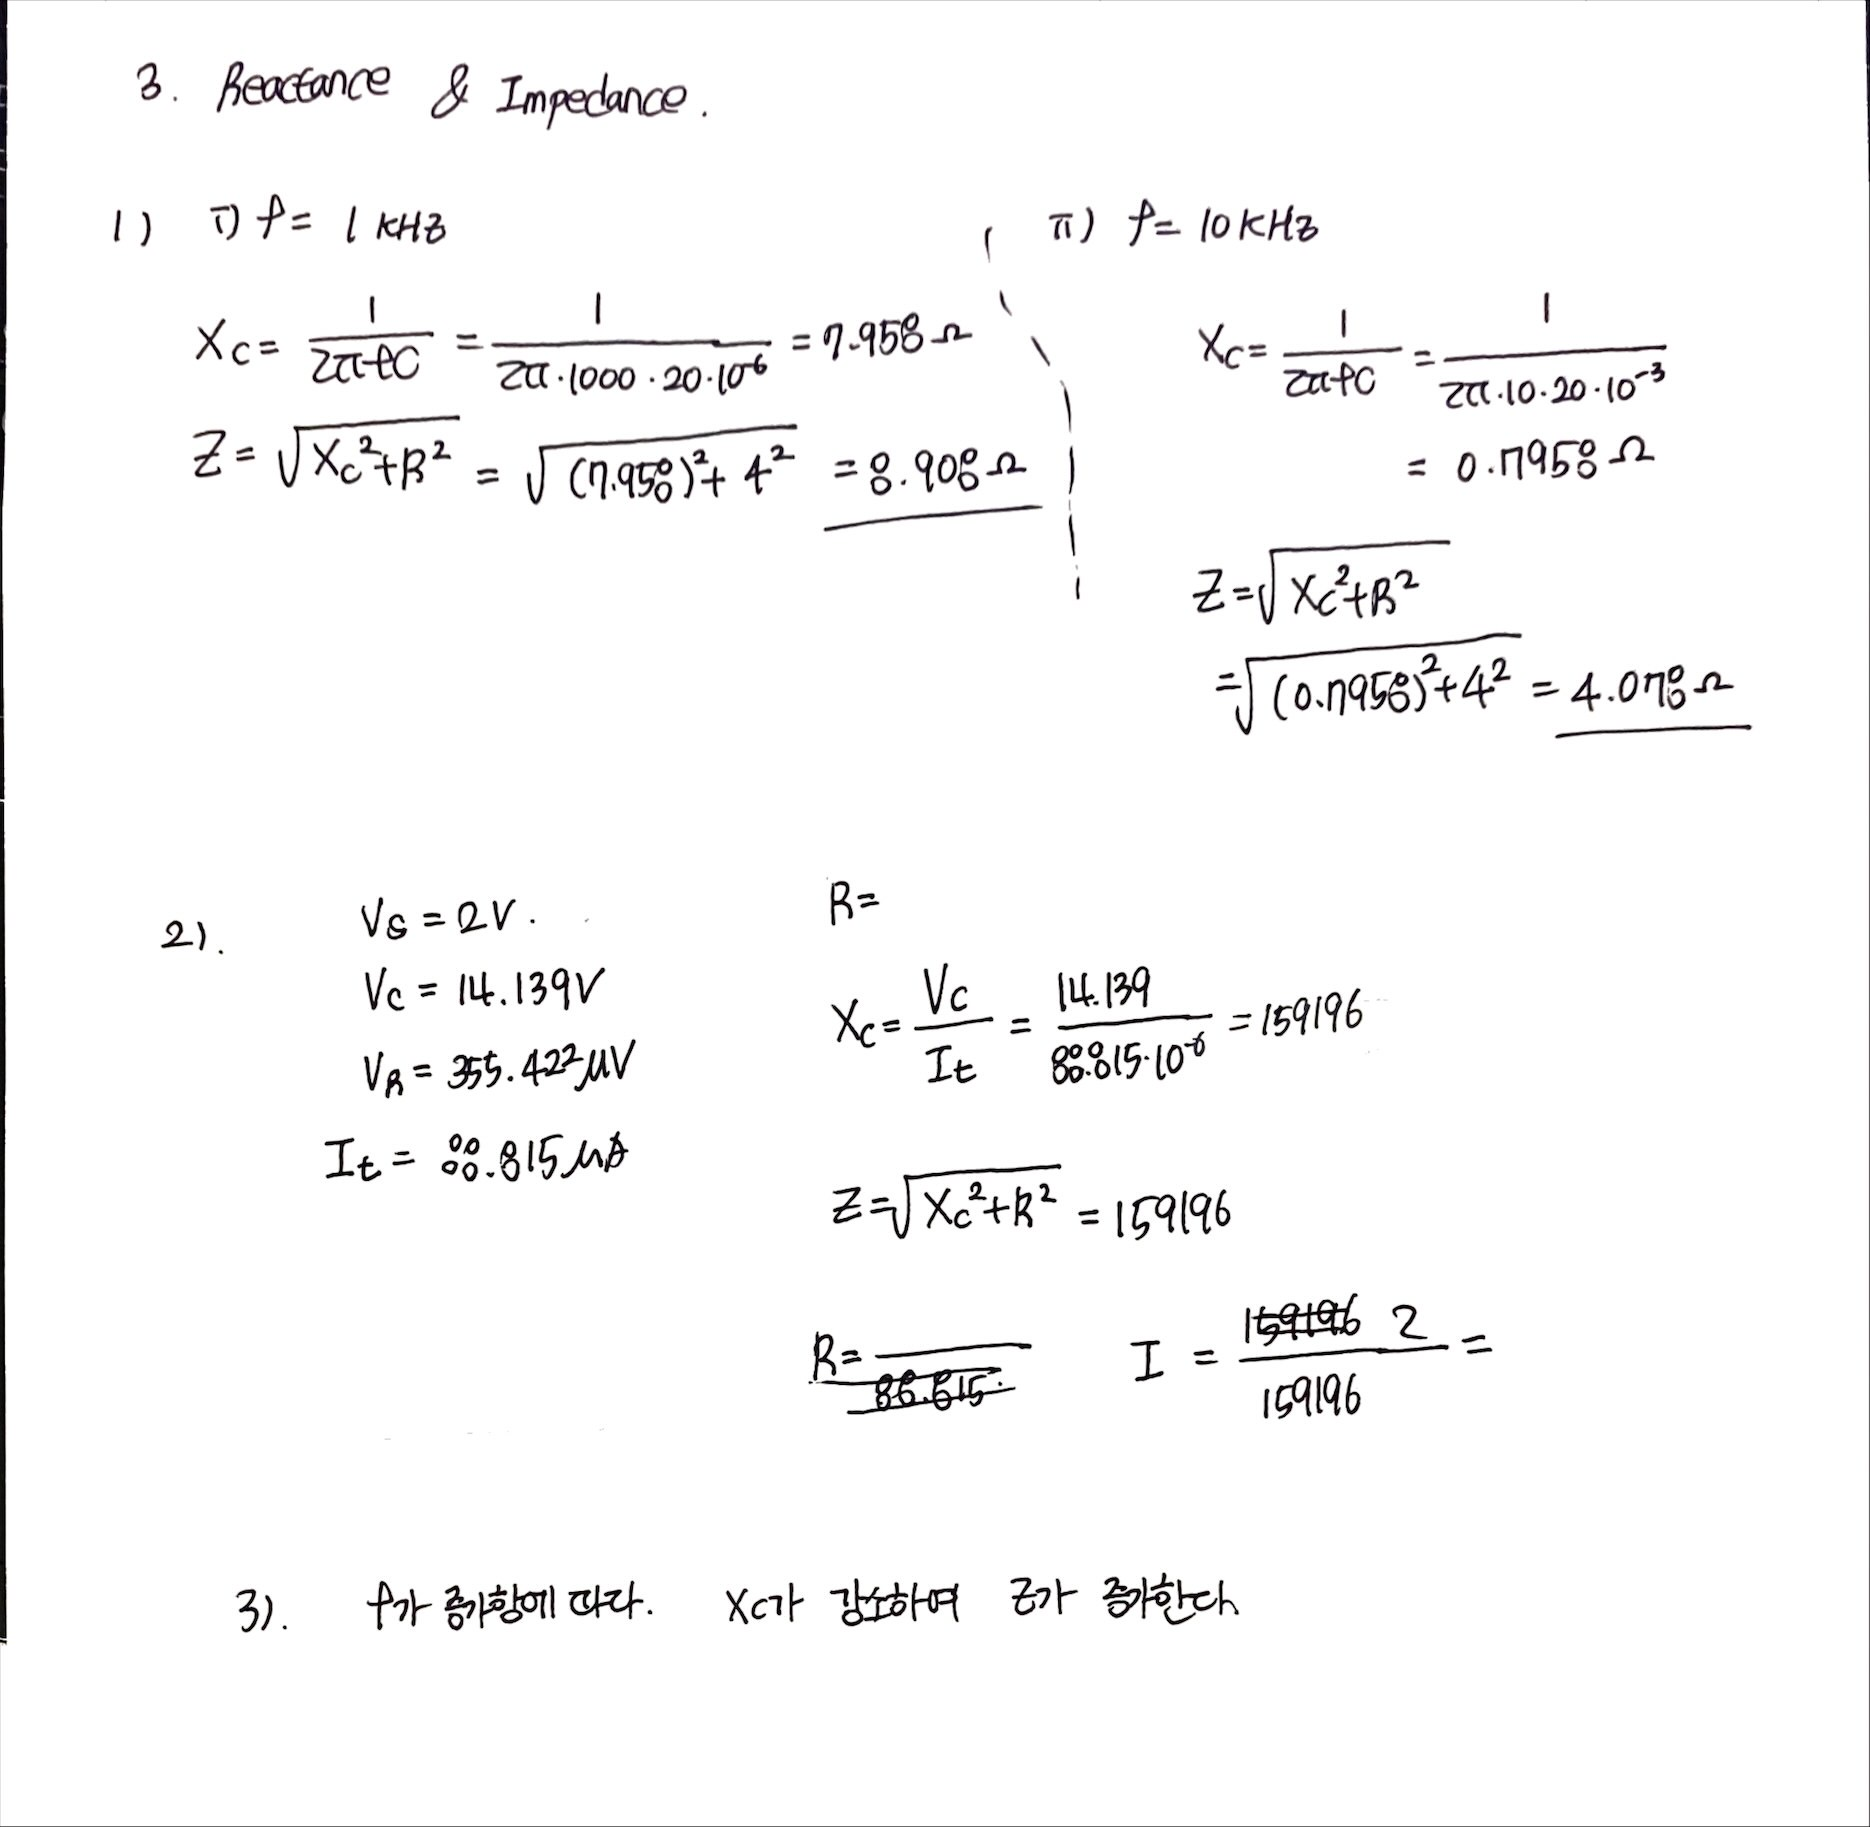 3. Reactance & Impedance.
1) i) f = 1 kHz
Xc = 1/2πfC = 1/2π·1000·20·10⁻⁶ = 7.958 Ω
Z = √Xc²+R² = √(7.958)²+4² = 8.908 Ω
ii) f = 10 kHz
Xc = 1/2πfC = 1/2π·10·20·10⁻³
= 0.7958 Ω
Z = √Xc²+R²
= √(0.7958)²+4² = 4.078 Ω
2).
Vs = 2V.
Vc = 14.139V
VR = 355.422μV
It = 88.815μA
R=
Xc = Vc/It = 14.139/88.815·10⁻⁶ = 159196
Z = √Xc²+R² = 159196
R= 88.815
I = 159196 2/159196 =
3). f가 증가함에 따라. Xc가 감소하여 Z가 증가한다